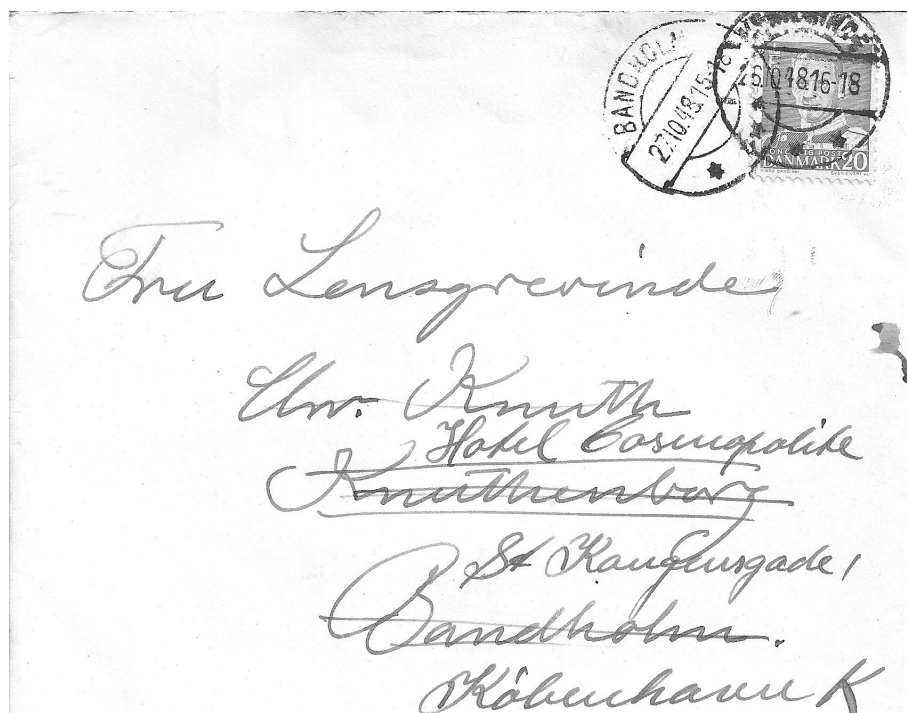 BANDHOLM
27.10.48.15-18
6.10.48.16-18
DANMARK 20
Frue Lensgrevinde
Chr. Knuth
Hotel Cosmopolite
Knuthenborg
St Kongensgade 1
Bandholm.
København K